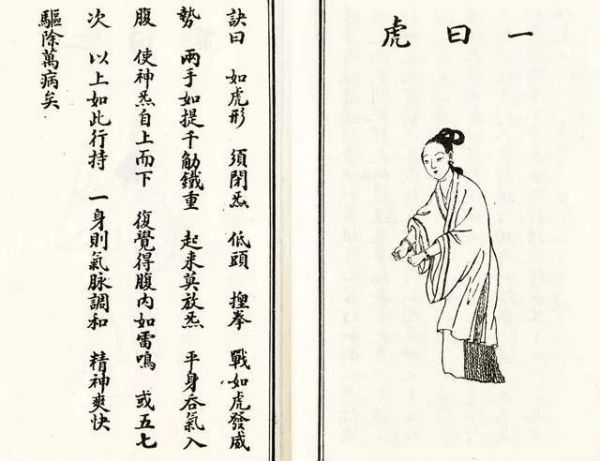 一曰虎
訣曰 如虎形 須閉炁 低頭 捏拳 戰如虎發威
勢 兩手如提千觔鐵重 起來莫放炁 平身吞氣入
腹 使神炁自上而下 復覺得腹内如雷鳴 或五七
次 以上如此行持 一身則氣脉調和 精神爽快
驅除萬病矣